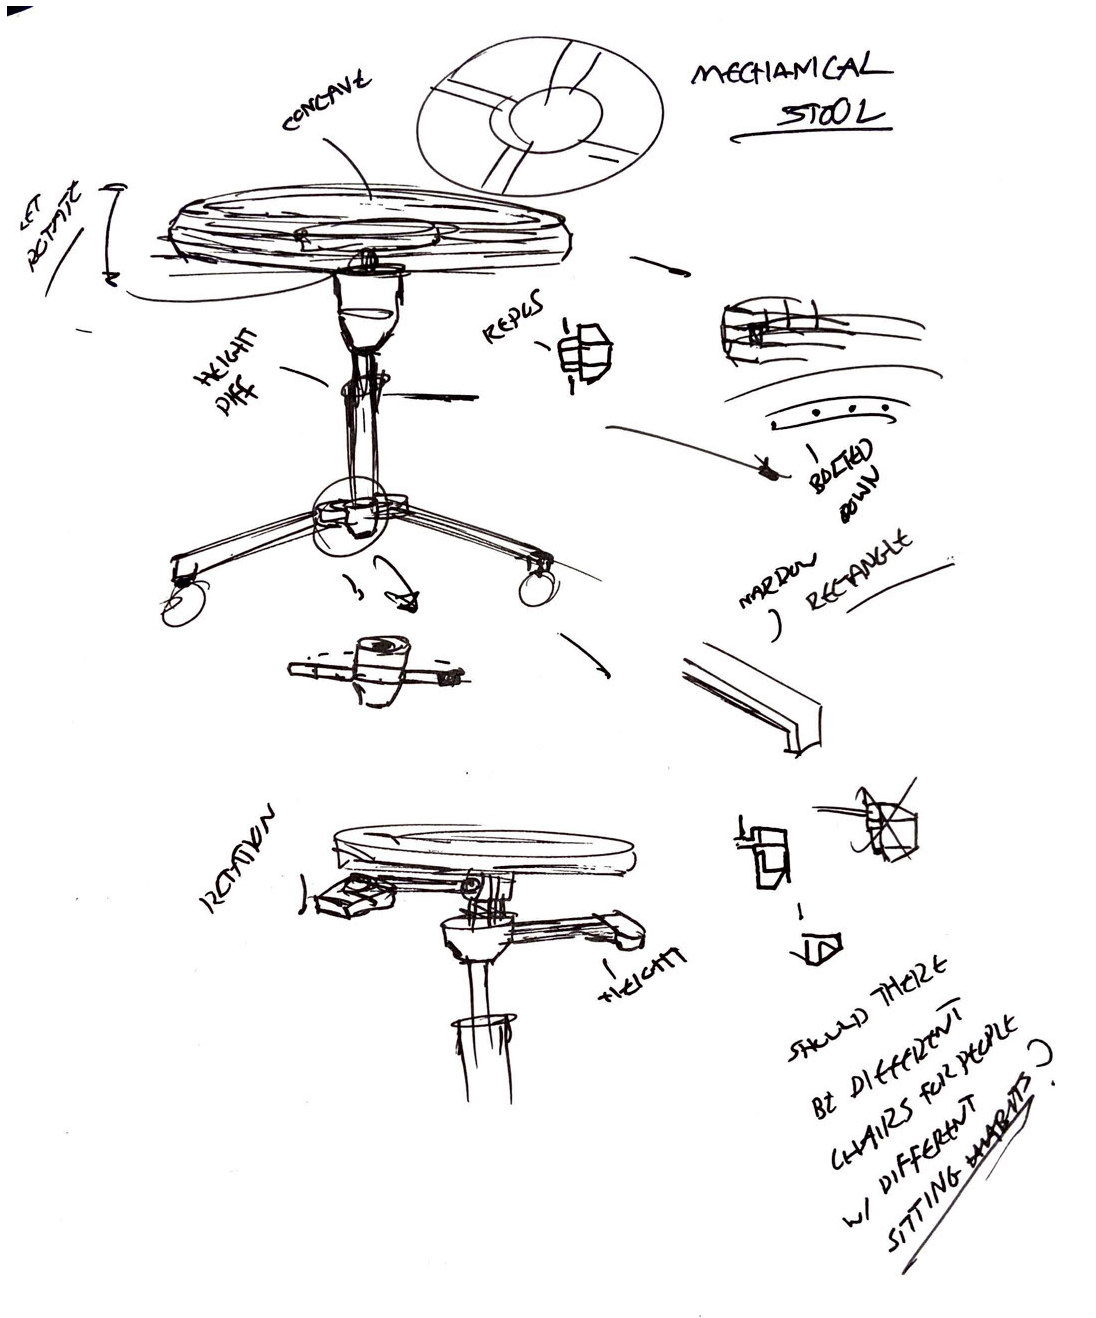 MECHANICAL
STOOL
CONCAVE
LET
ROTATE
HEIGHT
DIFF
BOLTED
DOWN
NARROW
RECTANGLE
ROTATION
HEIGHT
SHOULD THERE
BE DIFFERENT
CHAIRS FOR PEOPLE
W/ DIFFERENT
SITTING HABITS?